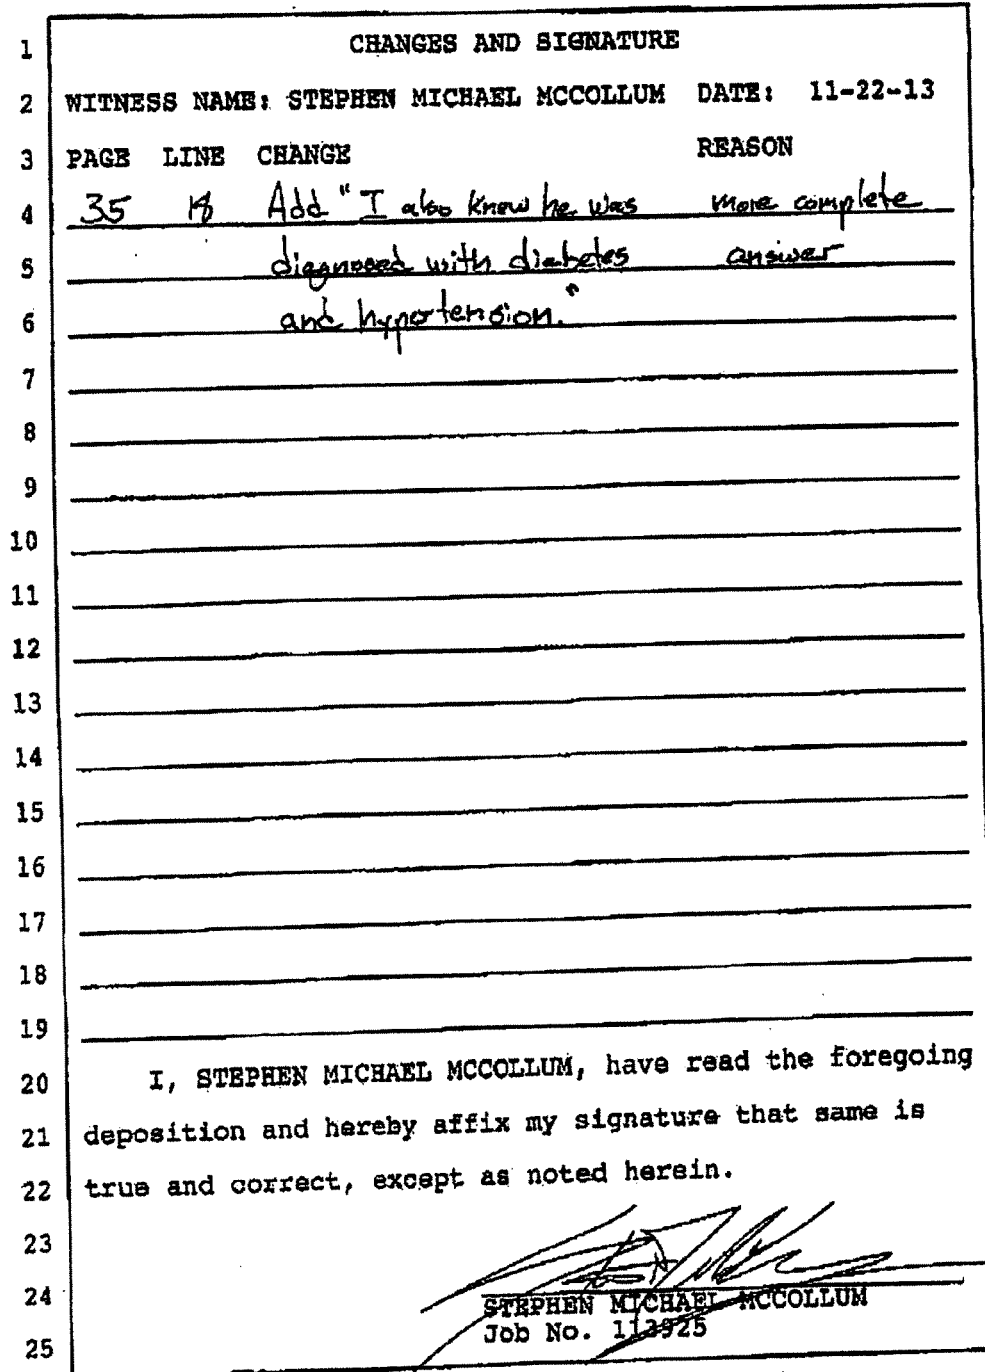 1 CHANGES AND SIGNATURE
2 WITNESS NAME: STEPHEN MICHAEL MCCOLLUM DATE: 11-22-13
3 PAGE LINE CHANGE REASON
4 35 18 Add "I also knew he was more complete
5 diagnosed with diabetes answer
6 and hypertension."
7
8
9
10
11
12
13
14
15
16
17
18
19
20 I, STEPHEN MICHAEL MCCOLLUM, have read the foregoing
21 deposition and hereby affix my signature that same is
22 true and correct, except as noted herein.
23
24 STEPHEN MICHAEL MCCOLLUM
Job No. 113925
25